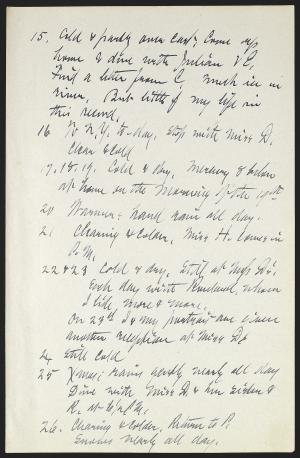 15. Cold & partly over cast, Come up
home & dine with Julian & C,
Find a letter from C, much ice in
river, But little of my life in
this record,
16 To N.Y. to-day, stop with Miss D,
Clear & cold
17.18.19. Cold & dry, Mercury 8 below
at home on the morning of the 19th
20 Warmer; hard rain all day.
21 Clearing & colder, Miss H. comes in
P.M.
22 & 23 Cold & dry, Still at Miss D's,
Each day with Rowland, whom
I like more & more,
On 23d I & my portrait are given
another reception at Miss Ds
24 Still cold
25 Xmas; rains gently nearly all day
Dine with Miss D & her sisters &
R. at 6 P.M.
26. Clearing & colder, Return to R.
Snows nearly all day.